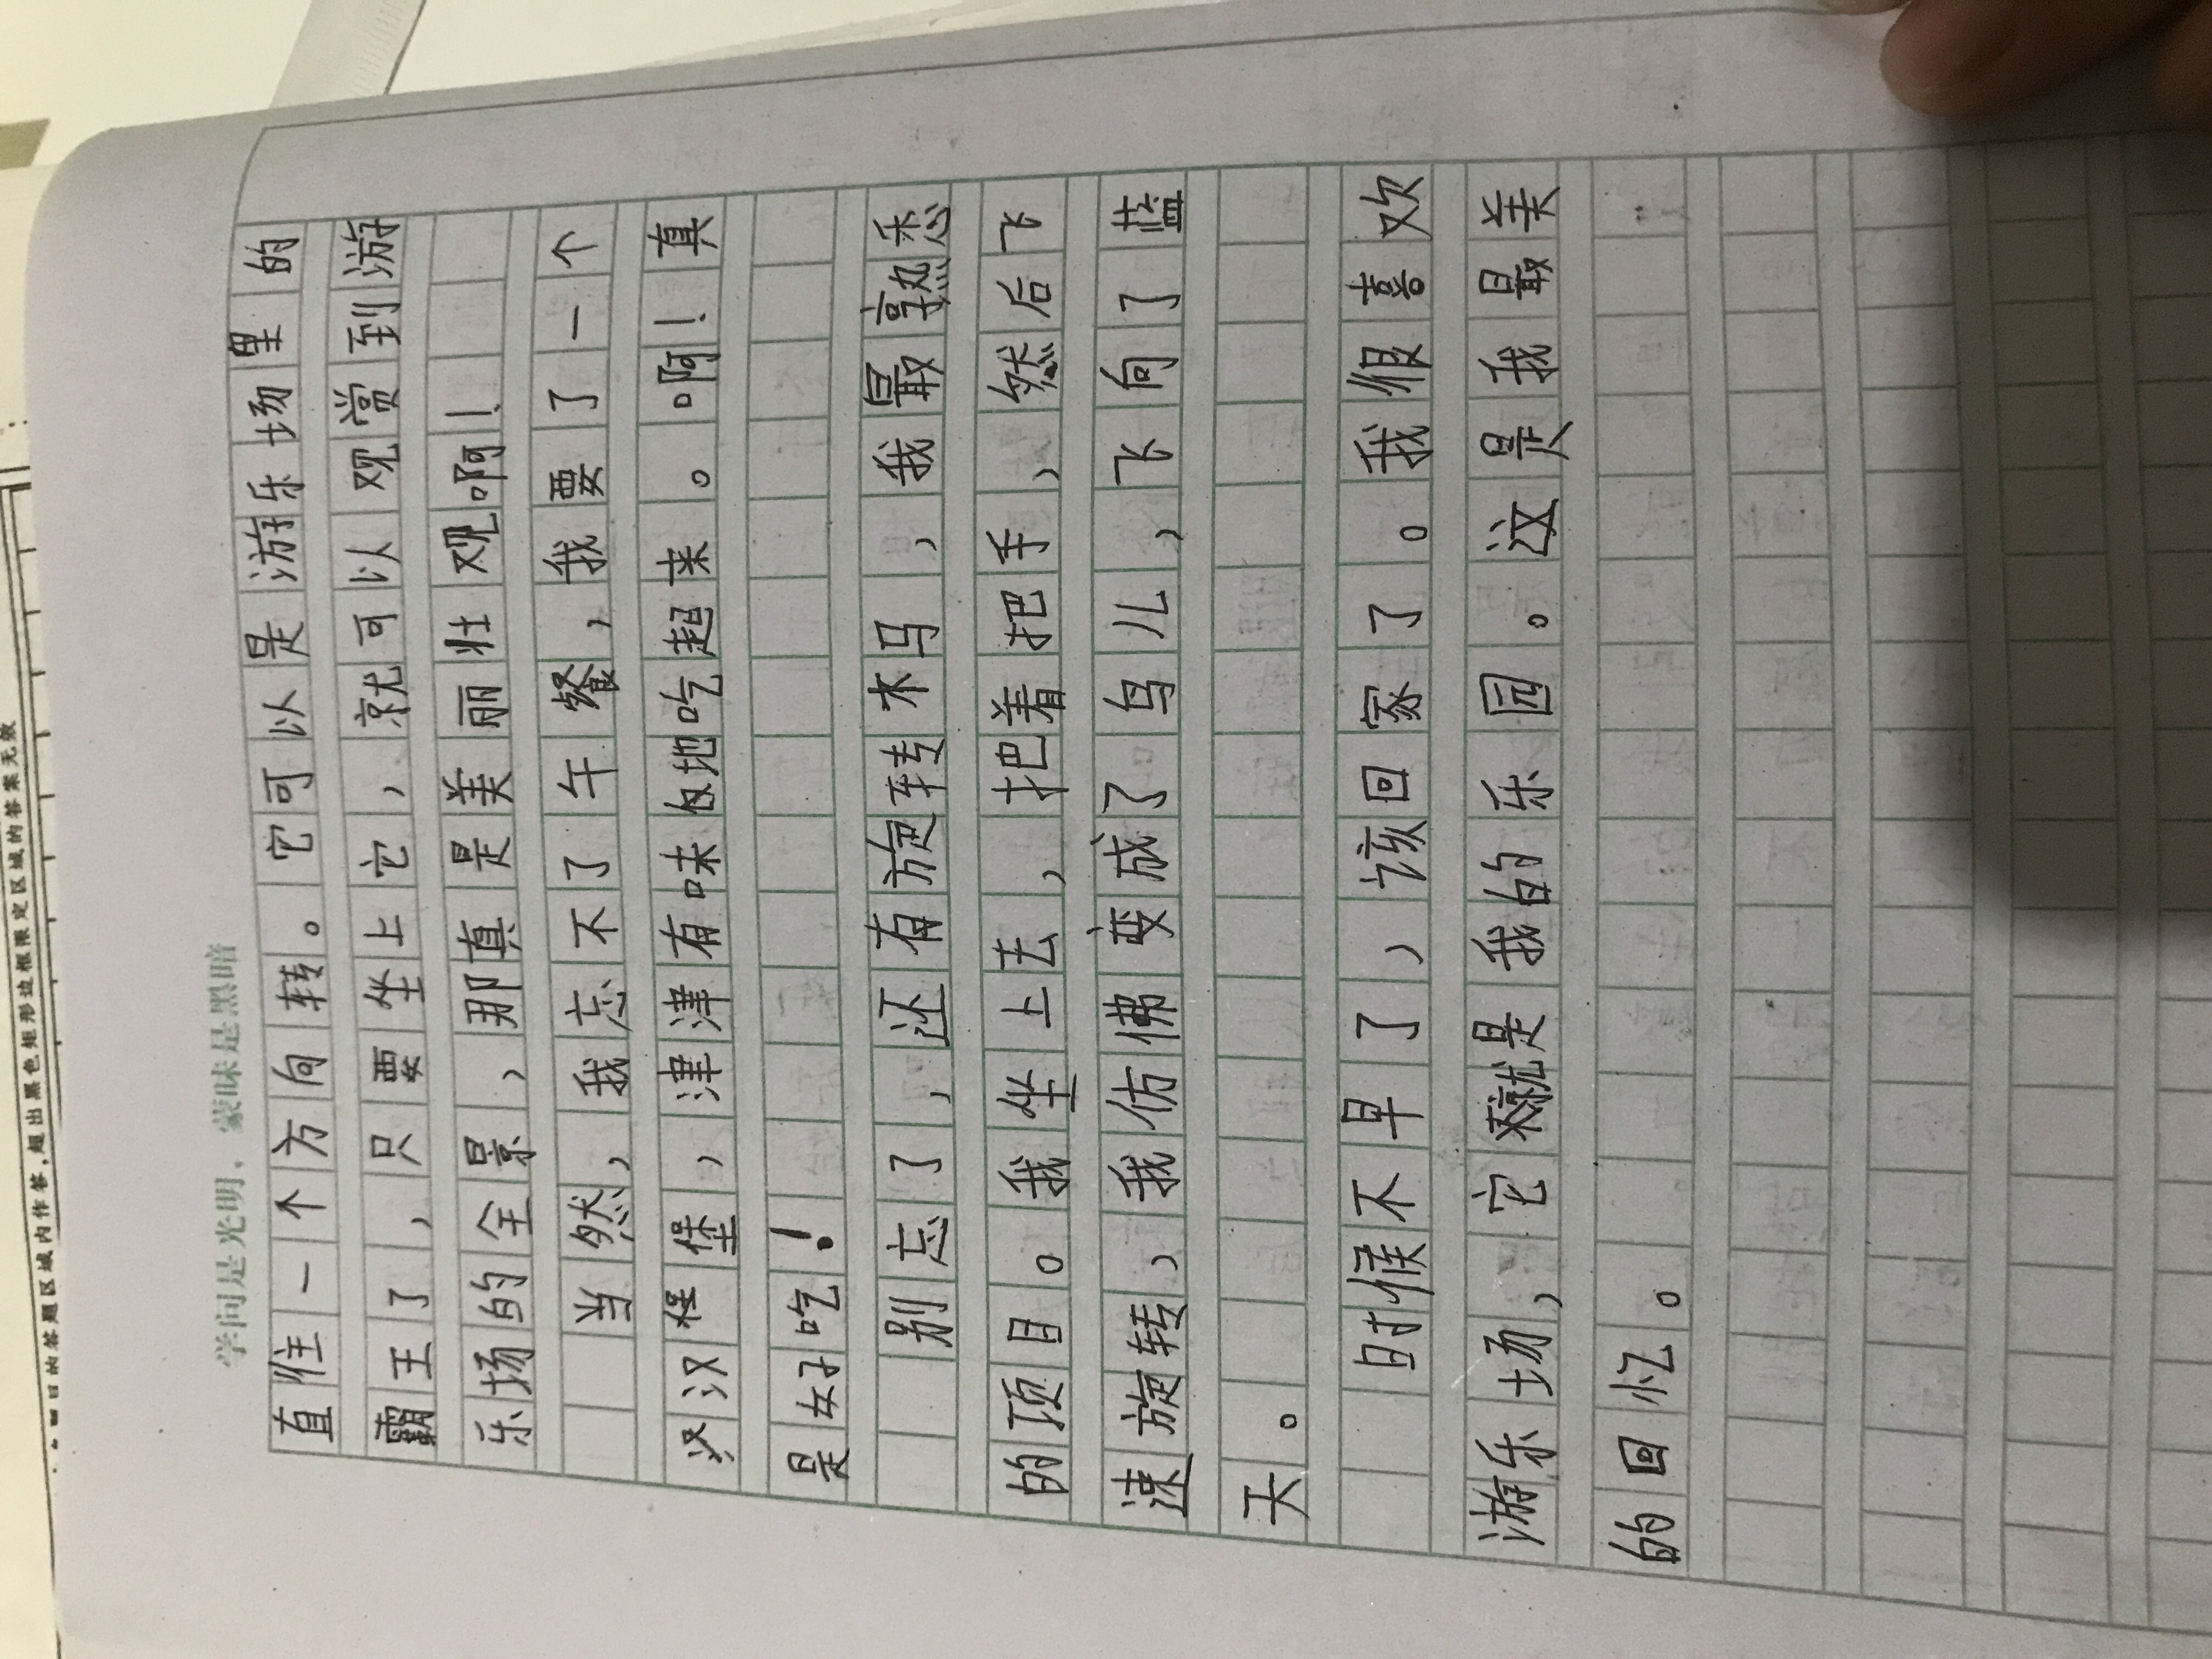 目的答题区域内作答,超出黑色矩形边框限定区域的答案无效
学问是光明,蒙昧是黑暗
直往一个方向转。它可以是游乐场里的
霸王了,只要坐上它,就可以观赏到游
乐场的全景,那真是美丽壮观啊!
当然,我忘不了午餐,我要了一个
汉堡,津津有味地吃起来。啊!真
是好吃!
别忘了,还有旋转木马,我最熟悉
的项目。我坐上去,把着把手,然后飞
速旋转,我仿佛变成了鸟儿,飞向了蓝
天。
时候不早了,该回家了。我很喜欢
游乐场,它就是我的乐园。这是我最美
的回忆。